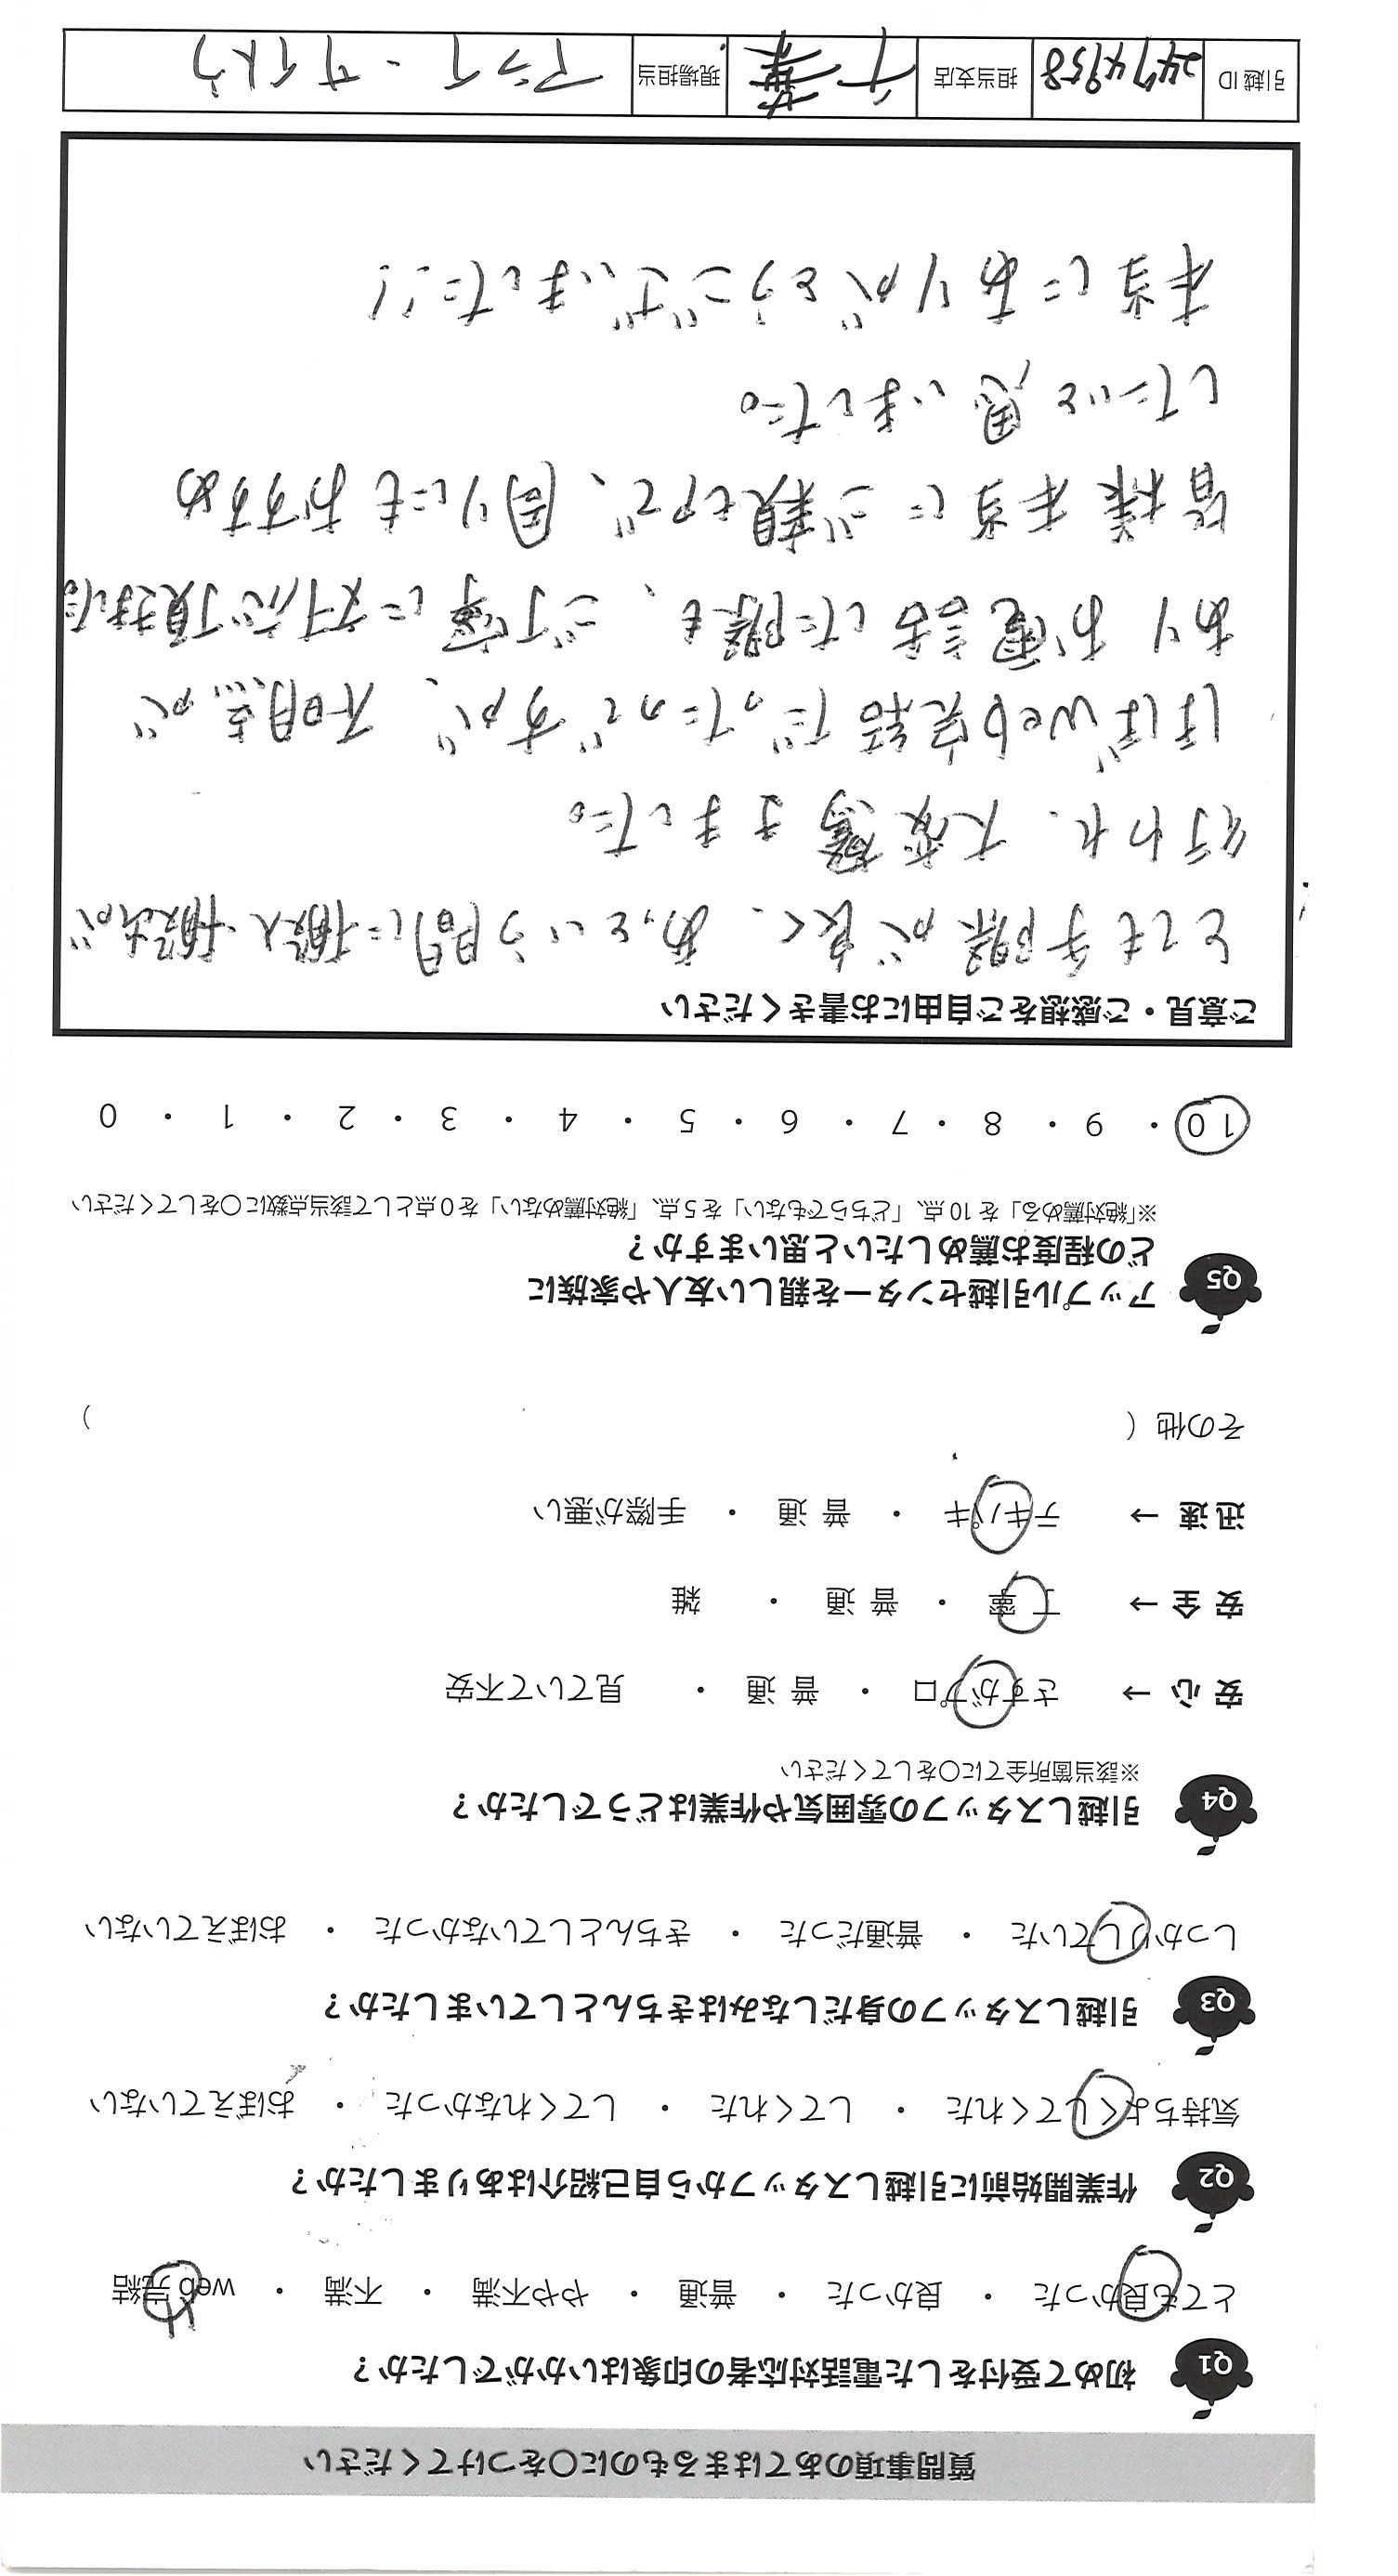 質問事項のあてはまるものに○をつけてください
Q1 初めて受付をした電話対応者の印象はいかがでしたか？
とても良かった ・ 良かった ・ 普通 ・ やや不満 ・ 不満 ・ web 完結
Q2 作業開始前に引越しスタッフから自己紹介はありましたか？
気持ちよくしてくれた ・ してくれた ・ してくれなかった ・ おぼえていない
Q3 引越しスタッフの身だしなみはきちんとしていましたか？
しっかりしていた ・ 普通だった ・ きちんとしていなかった ・ おぼえていない
Q4 引越しスタッフの雰囲気や作業はどうでしたか？
※該当箇所全てに○をしてください
安 心 → さすがプロ ・ 普 通 ・ 見ていて不安
安 全 → 丁 寧 ・ 普 通 ・ 雑
迅 速 → テキパキ ・ 普 通 ・ 手際が悪い
その他（ ）
Q5 アップル引越センターを親しい友人や家族に
どの程度お薦めしたいと思いますか？
※「絶対薦める」を 10 点、「どちらでもない」を 5 点、「絶対薦めない」を 0 点として該当点数に○をしてください
10 ・ 9 ・ 8 ・ 7 ・ 6 ・ 5 ・ 4 ・ 3 ・ 2 ・ 1 ・ 0
ご意見・ご感想をご自由にお書きください
とても手際が良く、あっという間に搬入・搬出が
行われ、大変驚きました。
ほぼweb完結だったのですが、不明点が
ありお電話した際も、ご丁寧に対応頂けた
皆様本当にご親切で、周りにもおすすめ
したいと思いました。
本当にありがとうございました!!
引越 ID 2474958 担当支店 千葉 現場担当 アライ・サイトウ